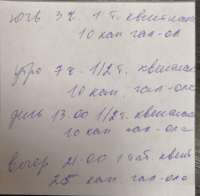 ночь 3ч. 1 т. квентиакс
10 кап гал-ол
утро 7ч. 1/2 т. квентиакс
10 кап. гал-ола
день 13.00 1/2 т. квентиакс
10 кап гал-ола
вечер 21.00 1 таб. квент
25 кап гал-ола